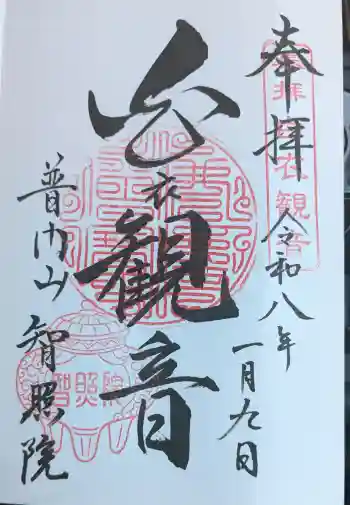 奉拝
令和八年
一月九日
白衣観音
普門山
智照院
白衣観音
智照院